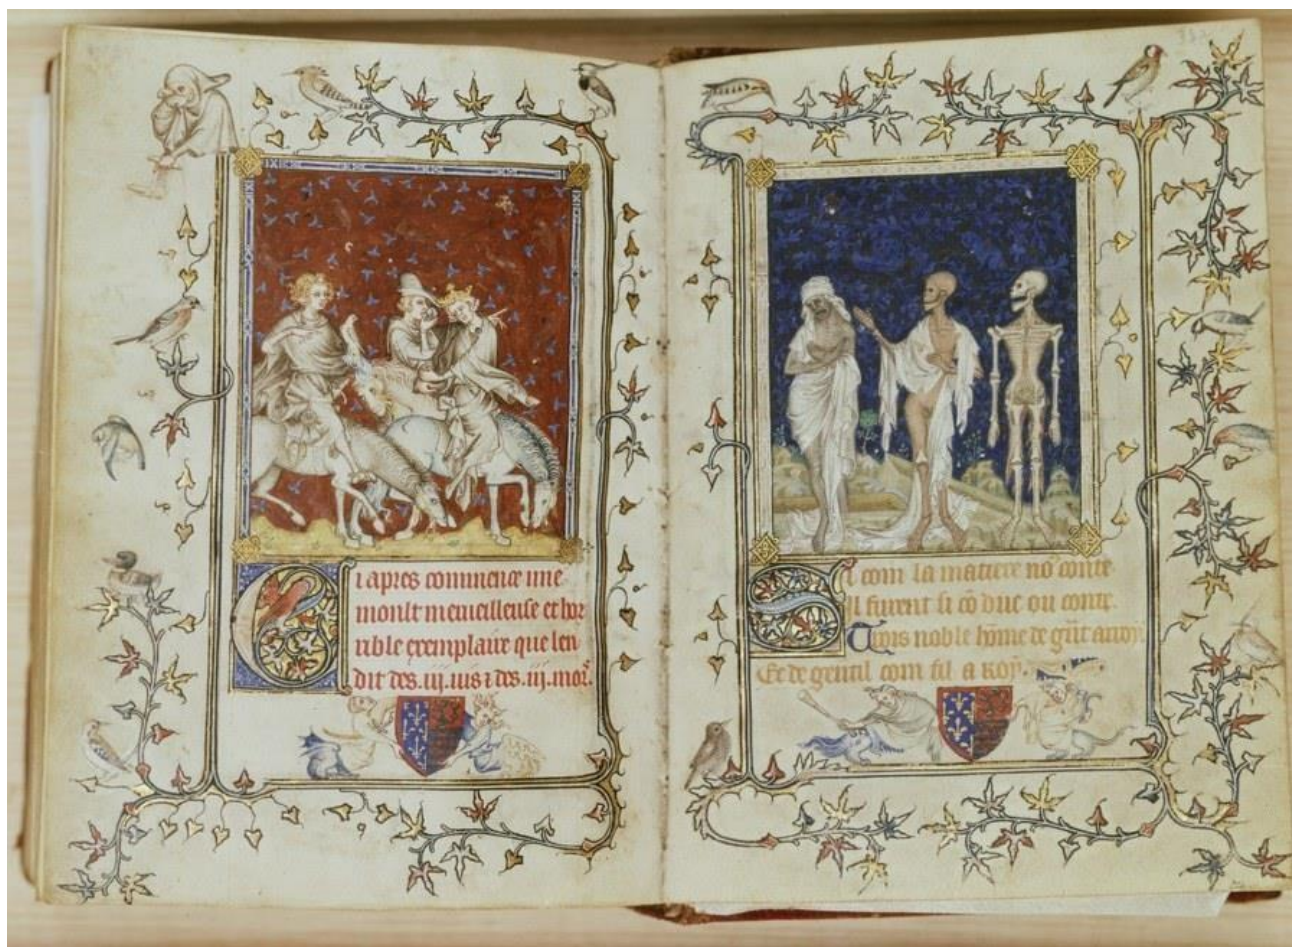 Ci apres commence une
moult merueilleuse et hor
rible exemplaire que len
dit des .iij. uis ⁊ des .iij. mors.
Si com la matiere nō conte
Il furent si cō duc ou conte.
Trois noble hōme de gñt arroy.
Et de gentil com fil a Roy.